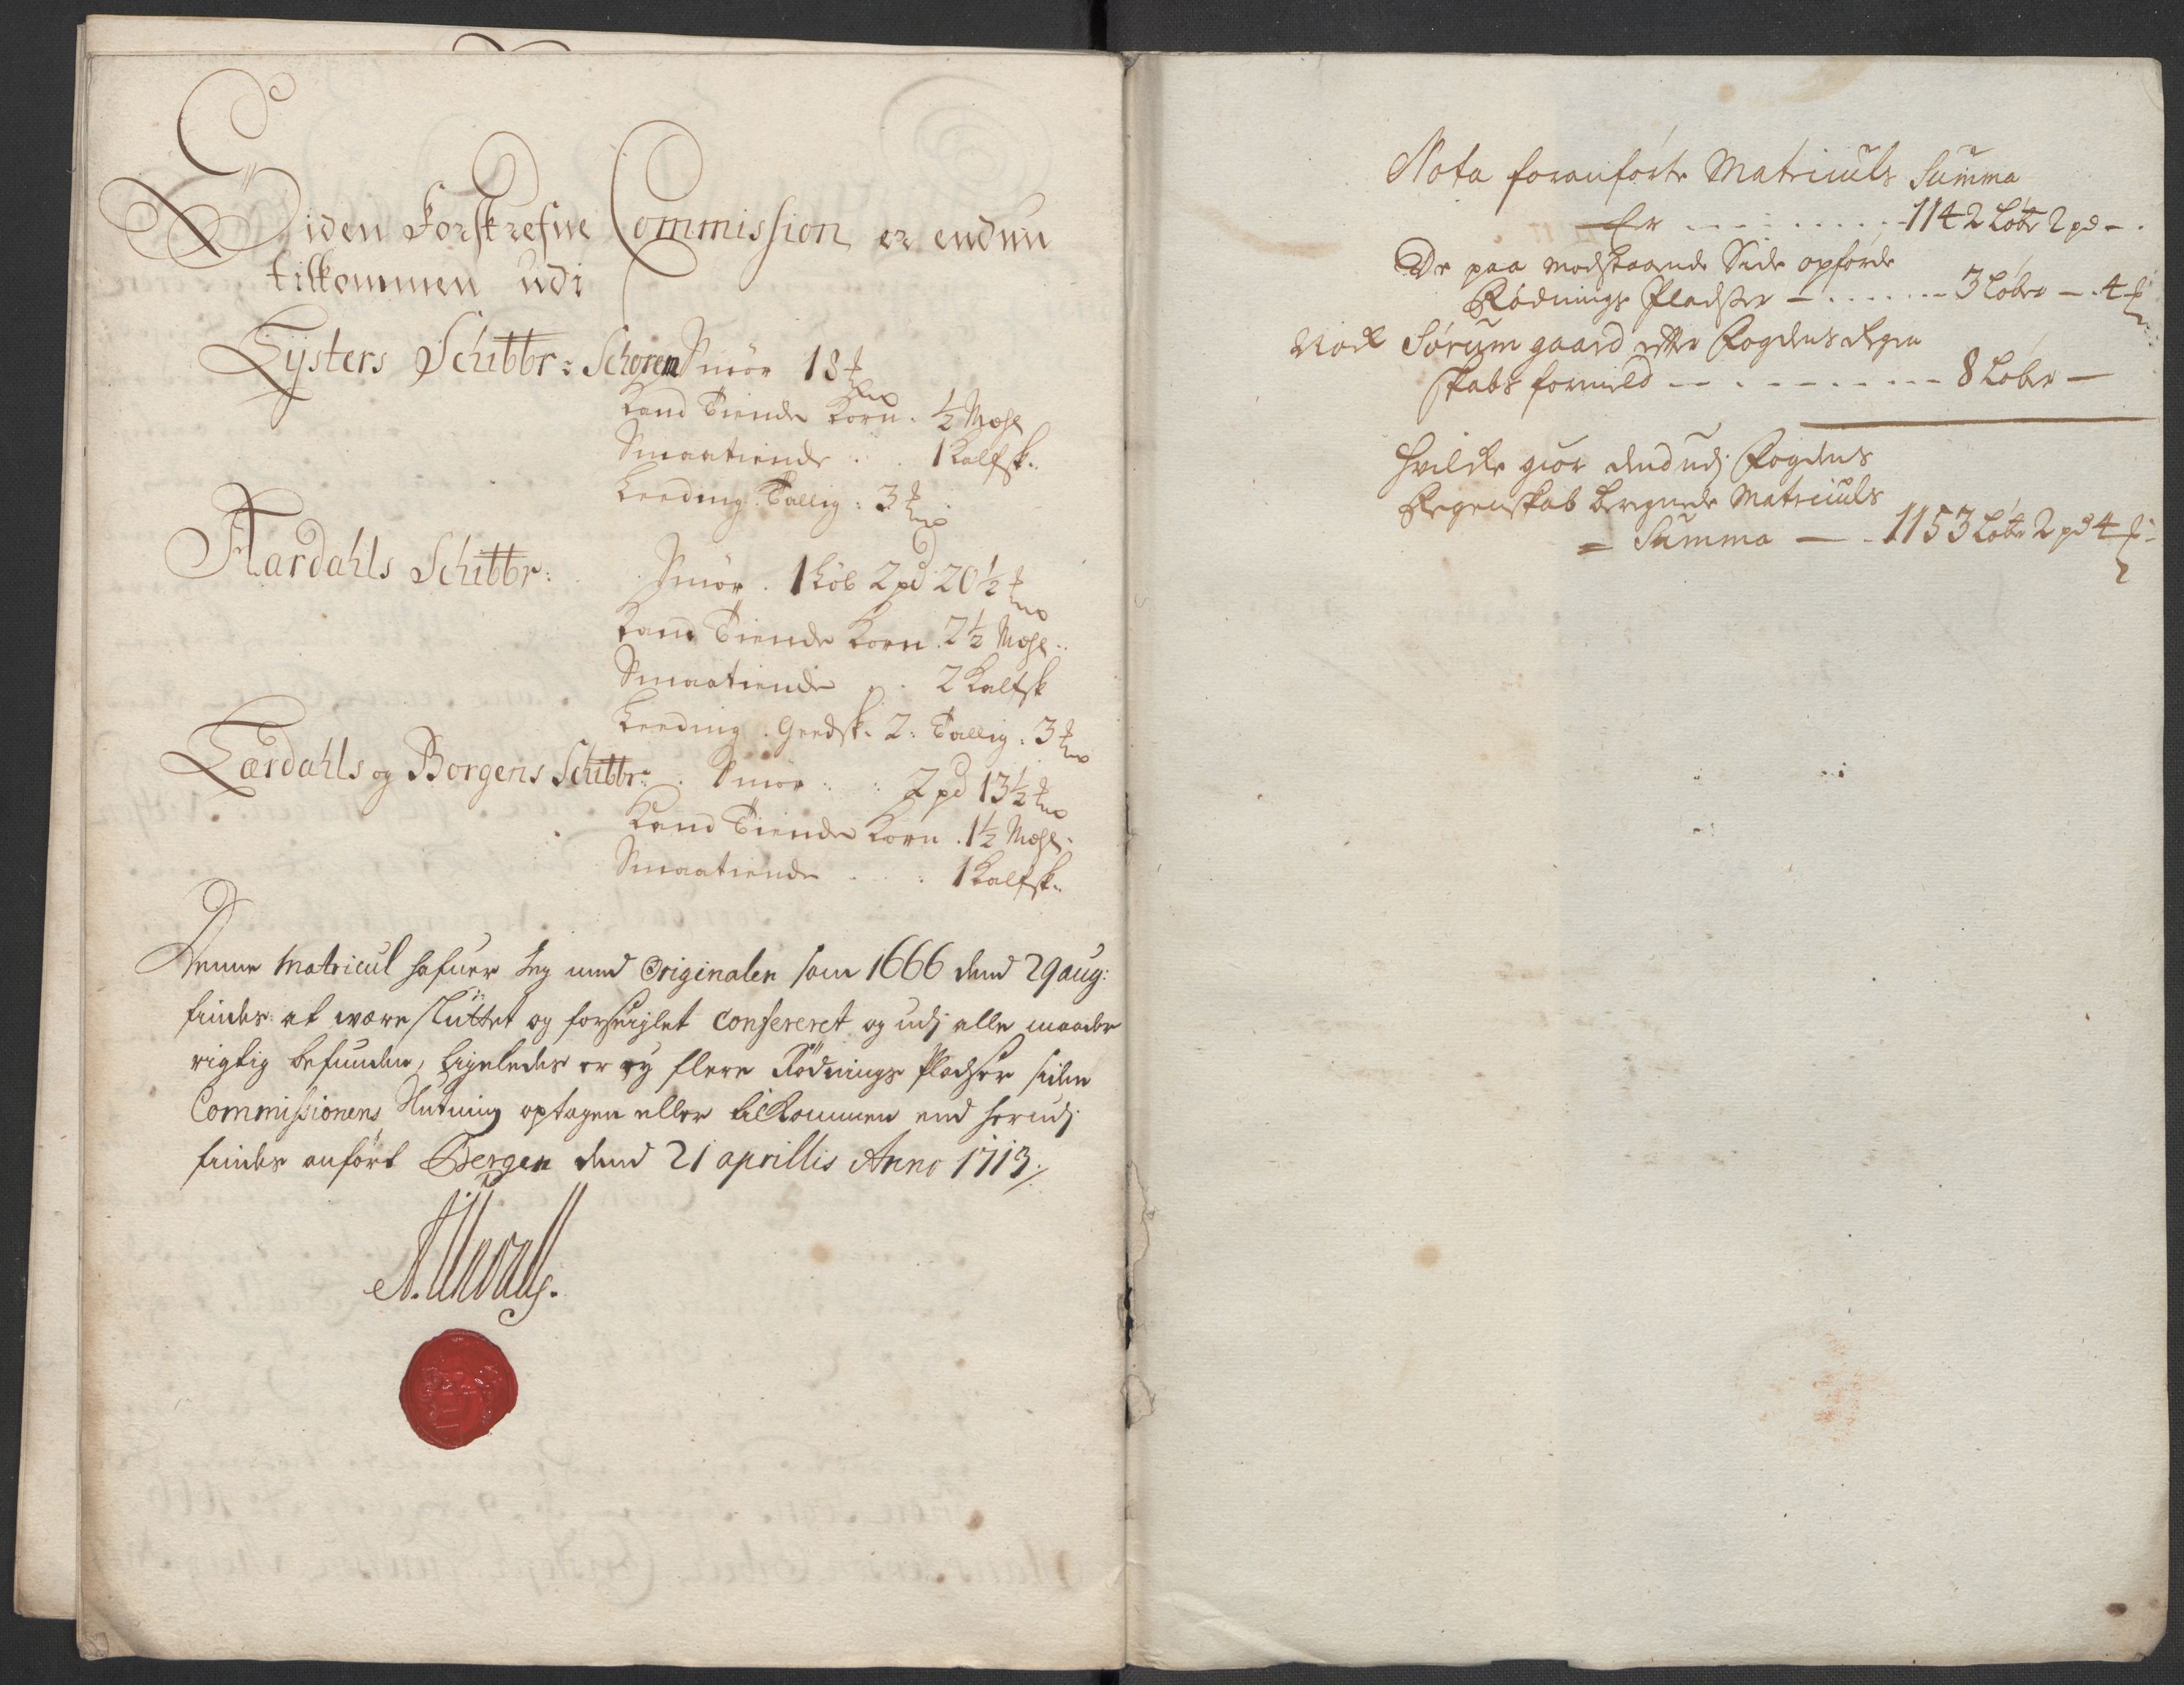 Siden Forskrefne Commission er endnu
tilkommen udi
Lysters Schibbr: Schoren Smör 18 ℔
Land Tiende Korn. ½ Mæhl
Smaatiende . . 1 Kalfsk.
Leeding. Tallig: 3 ℔
Aardahls Schibbr: Smör. 1 Löb 2 pd 20½ ℔
Land Tiende Korn. 2½ Mæhl.
Smaatiende . . 2 Kalfsk
Leeding. Geedsk. 2: Tallig: 3 ℔
Lærdahls og Borgens Schibbr: Smör . : 2 pd 13½ ℔
Land Tiende Korn. 1½ Mæhl.
Smaatiende . . . 1 Kalfsk.
Denne Matricul hafuer Jeg med Originalen som 1666 dend 29 aug:
findes at være sluttet og forseiglet Confereret og udj alle maader
rigtig befunden, Ligeledes er ey flere Rödnings Pladser siden
Commissionens Slutning optagen eller tilkommen end herudj
findes anfört Bergen dend 21 aprillis Anno 1713./
Nota foranförte Matriculs Summa
Er - - - - - - - 1142 Löbe 2 pd - .
De paa modstaaende Side opförde
Rödnings Pladser - . . . . . . 3 Löber - . 4 ℔
Nock Sörum gaard efter Fogdens Regen
skabs formeld - - . - - - - - - 8 Löber -
Hvilke giör dend udj Fogdens
Regenskab beregnede Matriculs
= Summa - . 1153 Löbe 2 pd 4 ℔